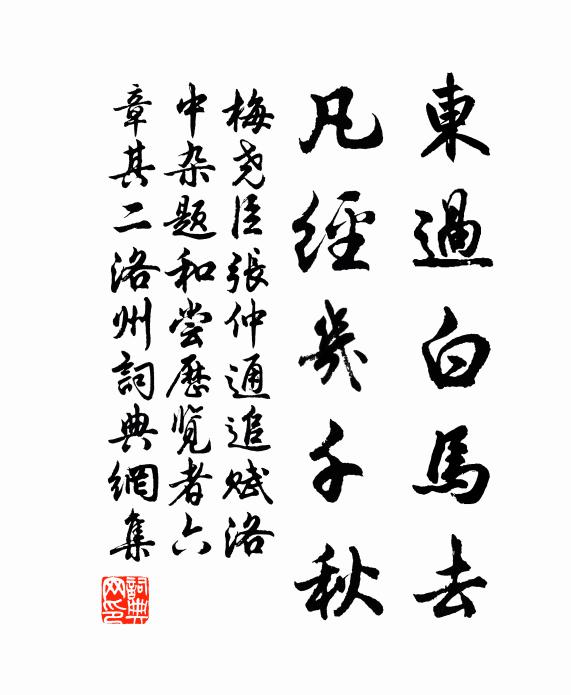 東過白馬去
凡經幾千秋
梅尧臣張仲通追赋洛
中杂题和尝歷览者六
章其二洛州詞典網集
詞典网印